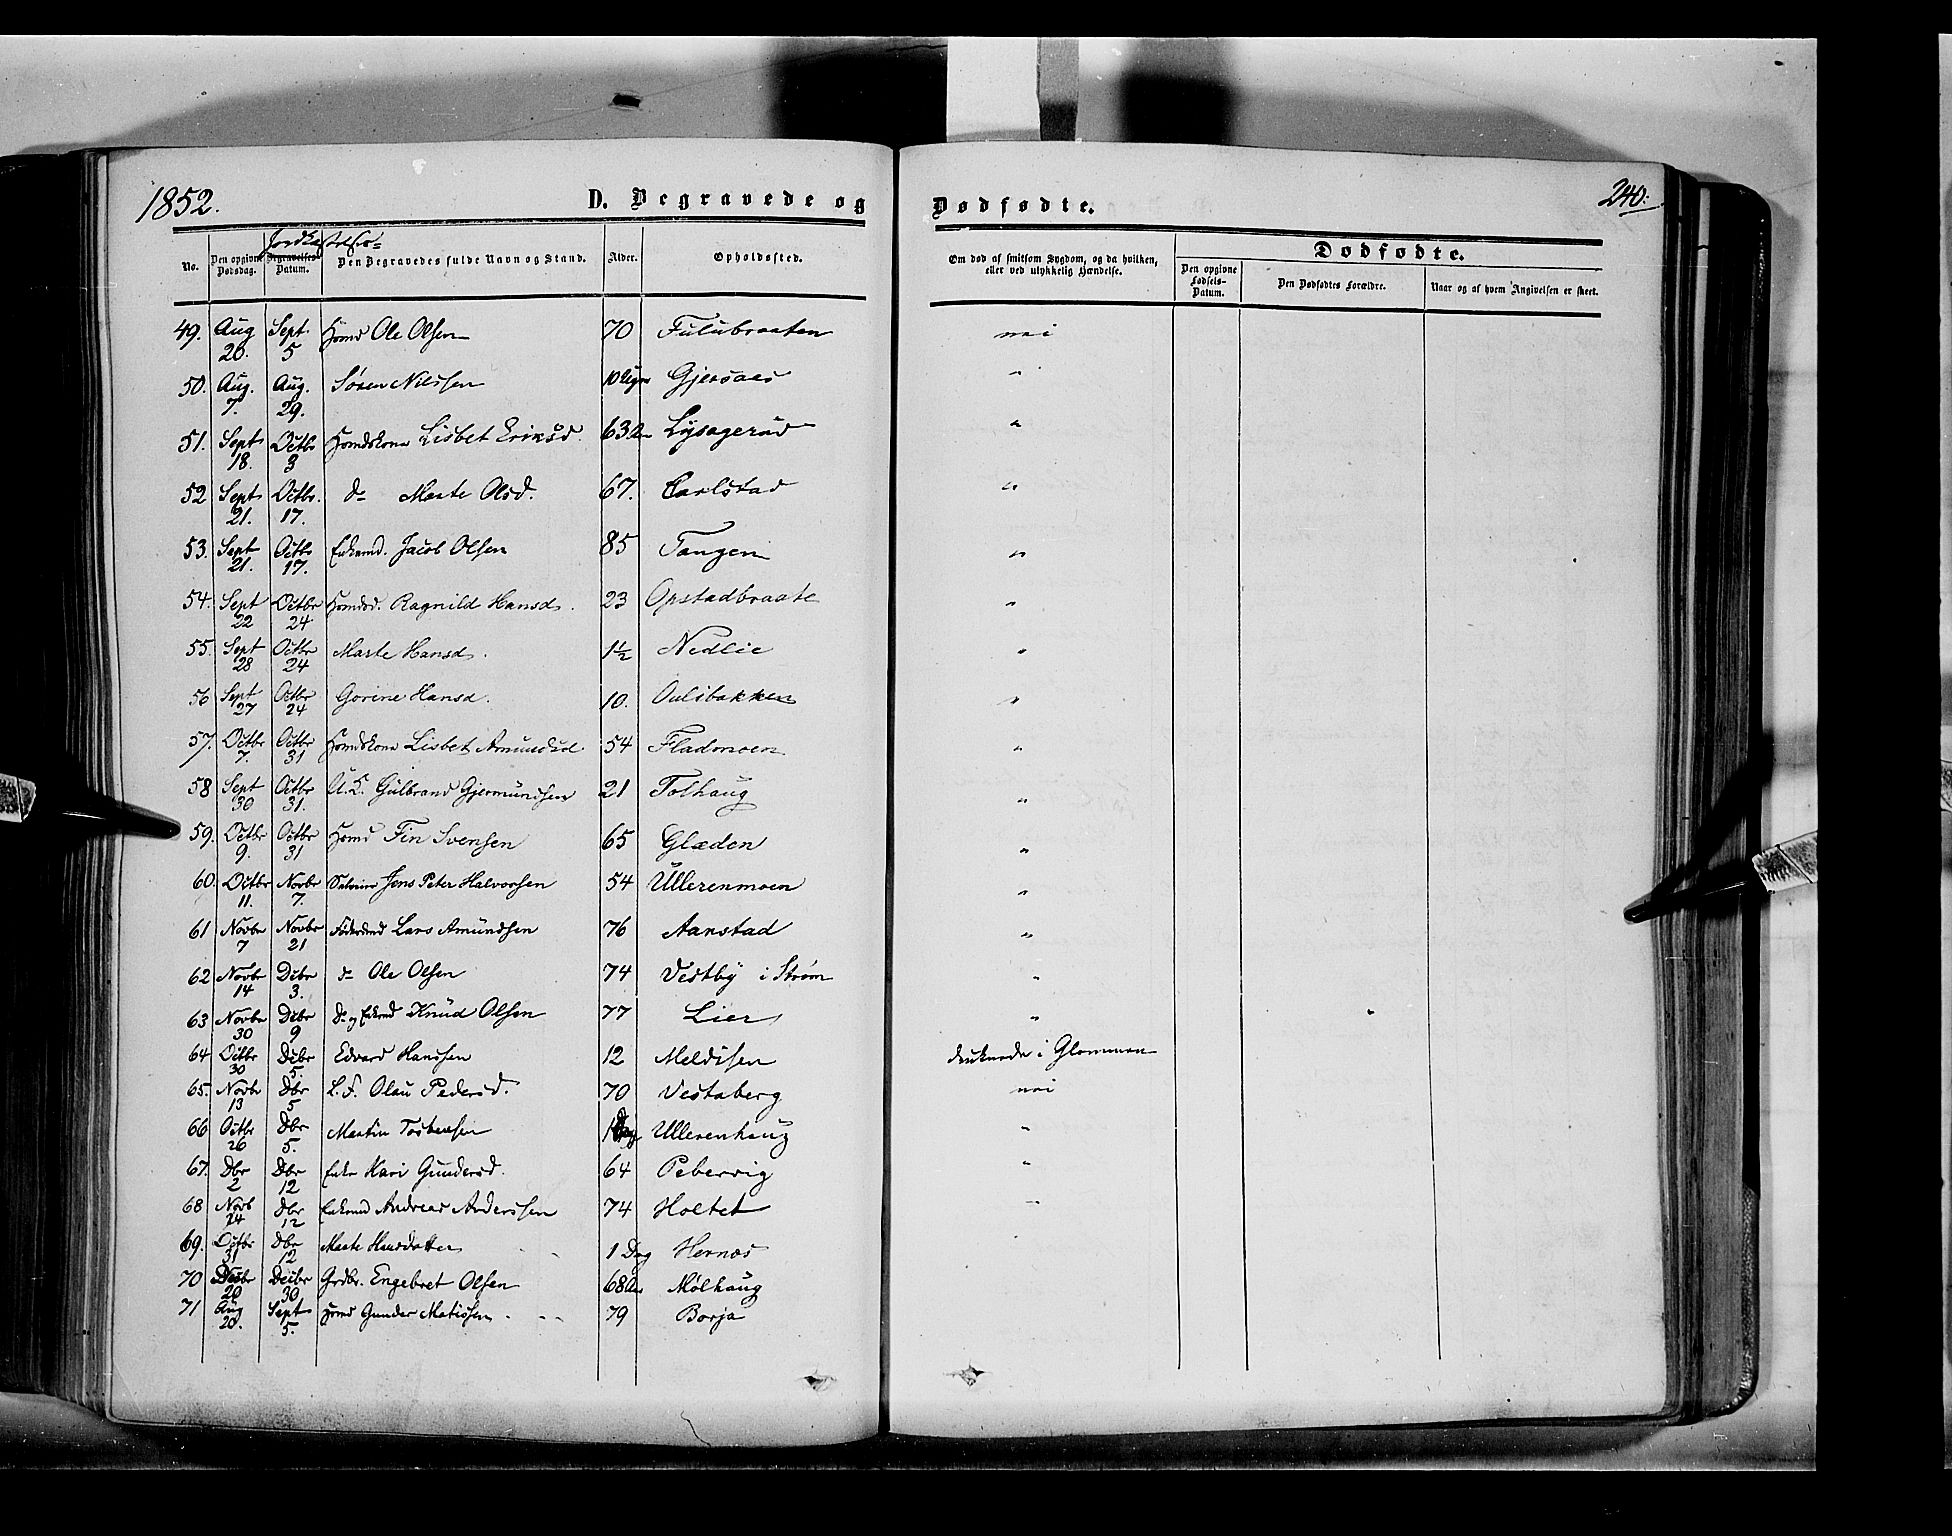 1852. D. Begravede og Dødfødte. 240.
Jordkastelses=
No. Den opgivne Dødsdag. Begravelses Datum. Den Begravedes fulde Navn og Stand. Alder. Opholdssted. Om død af smitsom Sygdom, og da hvilken, eller ved ulykkelig Hændelse. Dødfødte.
Den opgivne Fødsels-Datum. Den Dødfødtes Forældre. Naar og af hvem Angivelsen er skeet.
49. Aug 20. Sept. 5 Hsmd Ole Olsen 70 Fulubraaten nei
50. Aug. 7. Aug. 29. Søren Nilssen 10 Gjersaes "
51. Sept 18. Octbr 3 Hsmdskone Lisbet Eriksd. 63 Lysagerud "
52 Sept 21. Octbr. 17. do Marte Olsd. 67. Carlstad "
53. Sept 21. Octbr 17. Enkemd. Jacob Olsen 85 Tangen "
54. Sept 22 Octbr 24 Ragnild Hansd. 23 Opstadbraate "
55. Sept 28 Octbr 24 Marte Hansd. 1½ Nedlie "
56 Sept 27 Octbr 24 Gorine Hansd. 10. Oulibakken "
57. Octbr 7. Octbr 31 Hsmdskone Lisbet Amundsd 54 Fladmoen "
58 Sept 30 Octbr 31. U.K. Gulbrand Gjermundsen 21 Tolhaug "
59. Octbr 9. Octbr 31 Hsmd Fin Svensen 65 Glæden "
60. Octbr 11. Novbr 7. Jens Peter Halvorsen 54 Ullerenmoen "
61 Novbr 7 Novbr 21 Føderaad Lars Amundsen 76 Aanstad "
62 Novbr 14 Debr 3. do Ole Olsen 74 Vestby i Strøm "
63 Novbr 30 Debr 9 do og Enkemd Knud Olsen 77 Lier "
64 Octbr 30 Debr 5. Edvard Hanssen 12 Meldisen druknede i Glommen
65. Novbr 13 Dbr 5 L.F. Olau Pedersd. 70 Vestaberg nei
66 Octbr 26 Dbr 5. Martin Tostensen 1 Dag Ullerenhaug "
67. Dbr 2 Dbr 12 Enke Kari Gundersd. 64 Pebervig "
68 Novb 24 Dbr 12 Enkemd Andreas Anderssen 74 Holtet "
69. Octbr 31 Dbr 12 Marte Hansdatter 1 Dag Hernes
70 20 Decbr 30 Grdbr. Engebret Olsen 68 Aar Mølhaug
71 Aug 20. Sept 5. Hsmd Gunder Matissen 79 Borja